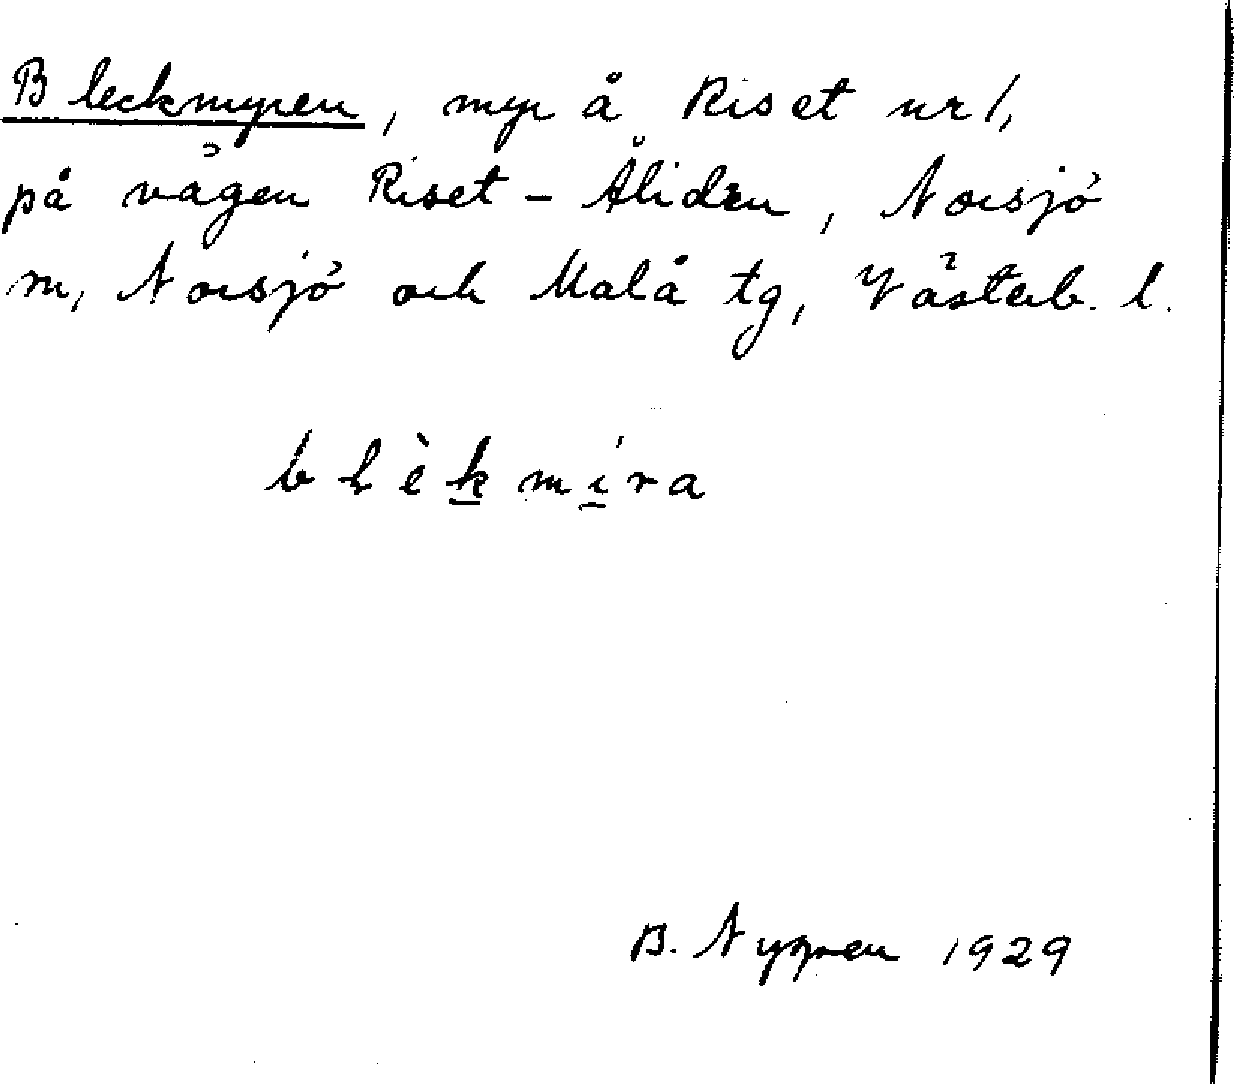 Bleckmyren, myr å Riset nr 1,
på vägen Riset - Åliden, Norsjö
sn, Norsjö och Malå tg, Västerb. l.
blèkmíra
B. Nygren 1929